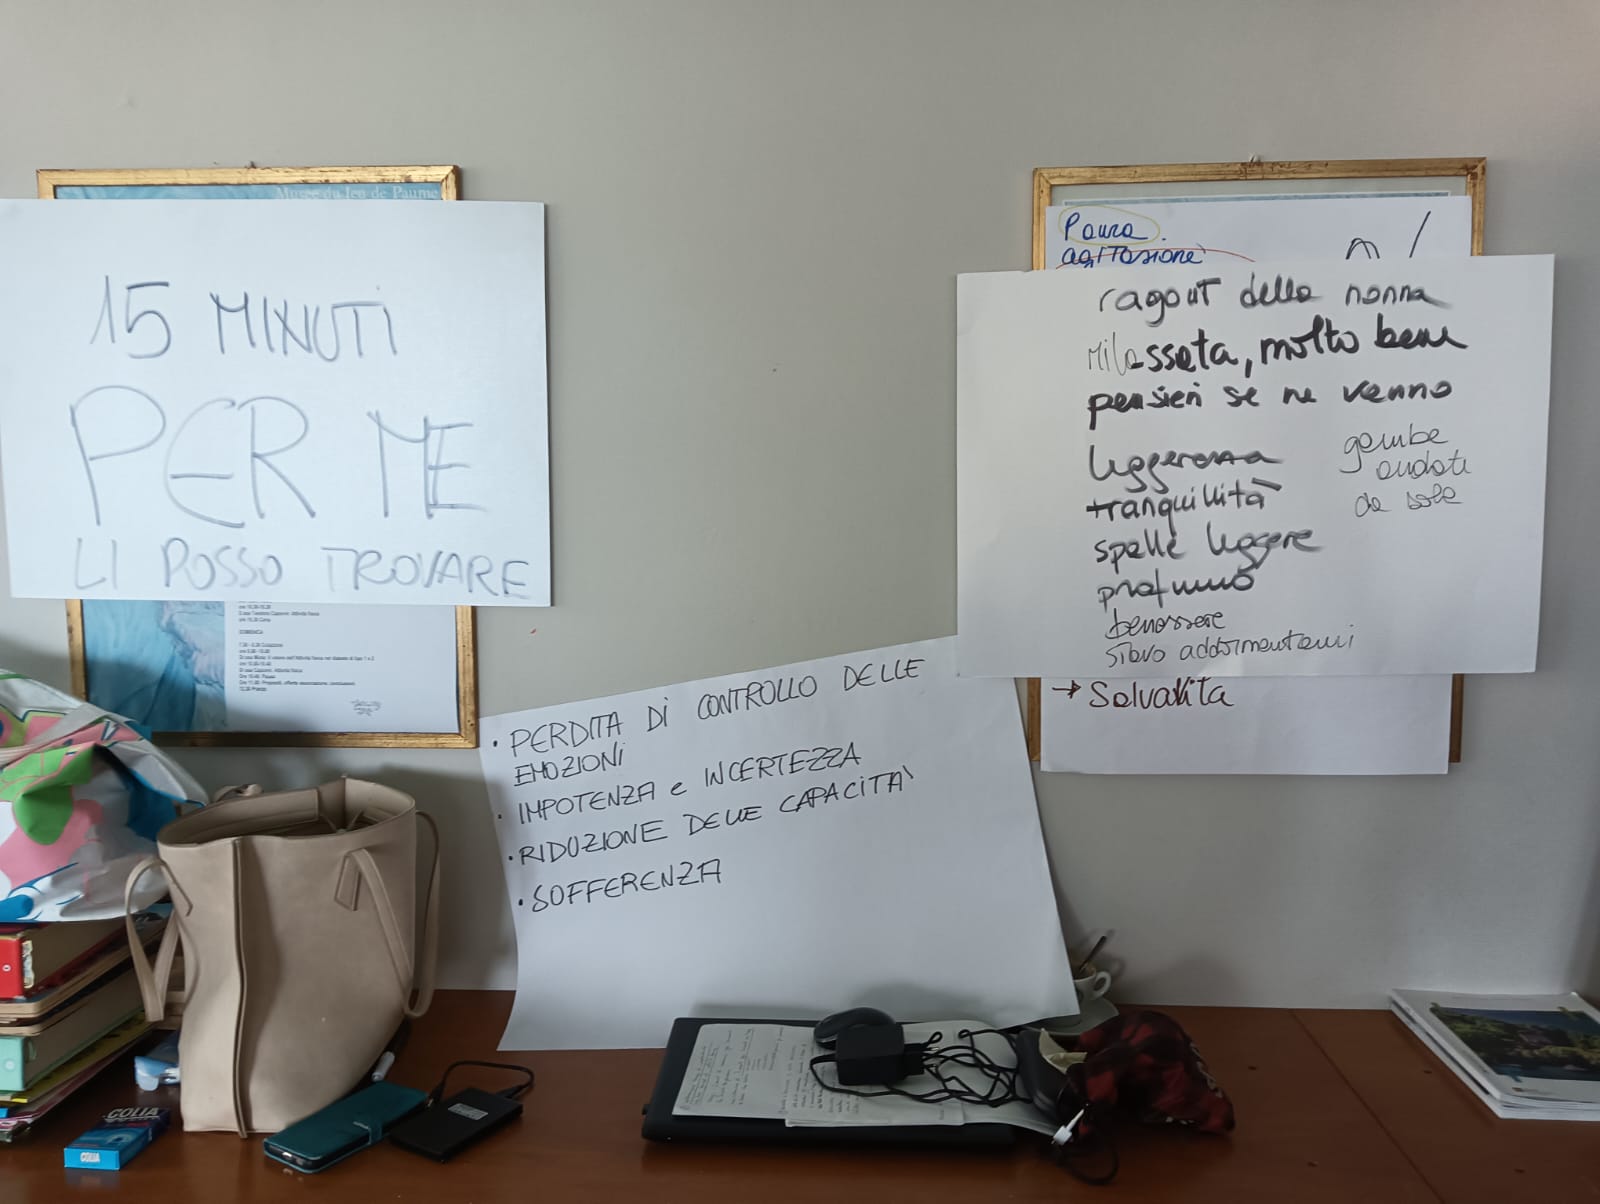 Musée du Jeu de Paume
15 MINUTI
PER ME
LI POSSO TROVARE
DOMENICA
Paura.
agitazione
ragout della nonna
rilassata, molto bene
pensieri se ne vanno
leggerezza
tranquillità
spalle leggere
profumo
benessere
stavo addormentarmi
gambe
andate
da sole
→ Salvavita
• PERDITA DI CONTROLLO DELLE
EMOZIONI
• IMPOTENZA e INCERTEZZA
• RIDUZIONE DELLE CAPACITÀ
• SOFFERENZA
GOLIA
GOLIA